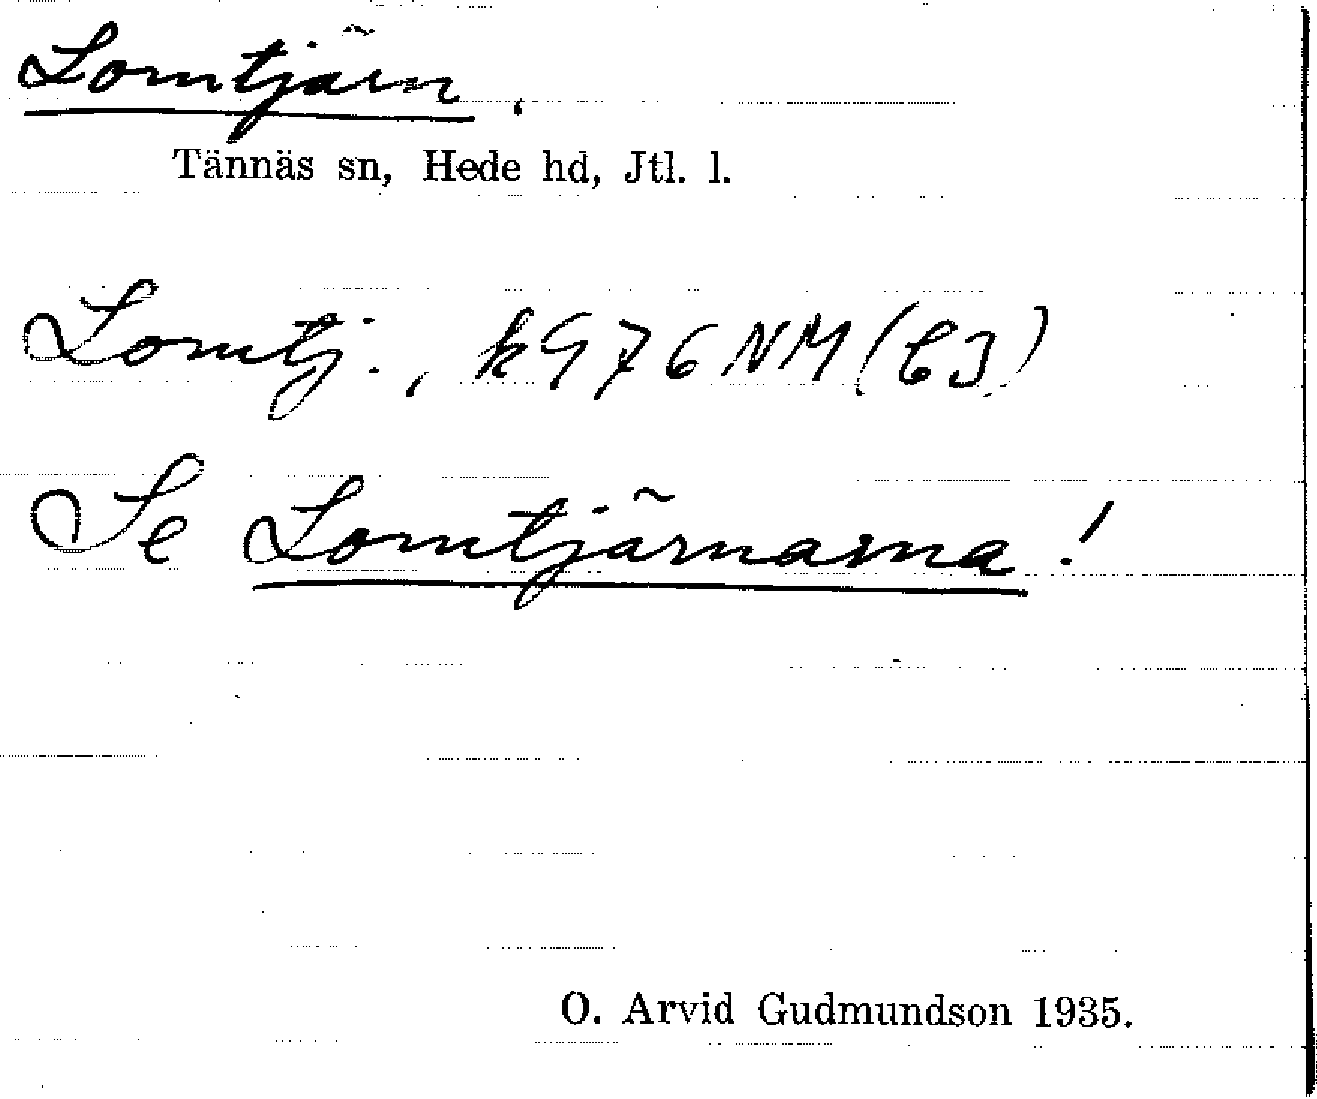 Lomtjärn.
Tännäs sn, Hede hd, Jtl. l.
Lomtj., k 976 NM (CJ)
Se Lomtjärnarna!
O. Arvid Gudmundson 1935.